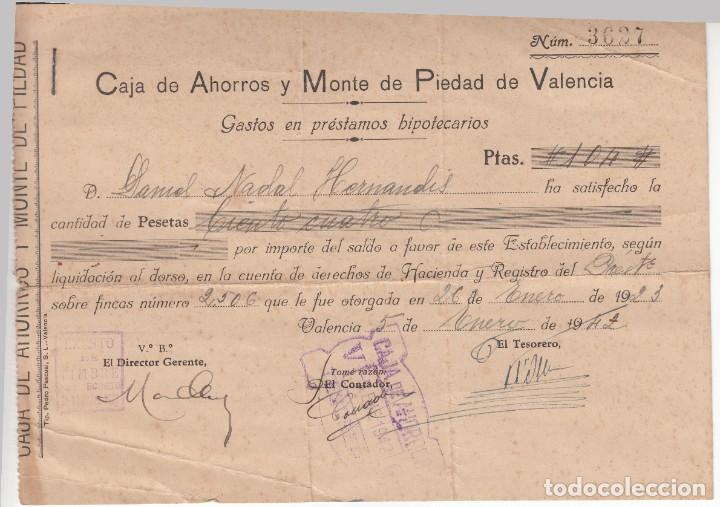 Núm. 3627
Caja de Ahorros y Monte de Piedad de Valencia
Gastos en préstamos hipotecarios
Ptas. # 104 #
D. Daniel Nadal Hernandis ha satisfecho la
cantidad de Pesetas Ciento cuatro
por importe del saldo a favor de este Establecimiento, según
liquidación al dorso, en la cuenta de derechos de Hacienda y Registro del
sobre fincas número 2,506 que le fue otorgada en 26 de Enero de 1923
Valencia 5 de Enero de 1942
V.º B.º
El Director Gerente,
Tomé razón,
El Contador,
El Tesorero,
CAJA DE AHORROS Y MONTE DE PIEDAD
Tip. Pedro Pascual, S. L.-Valencia
EXENTO
TIMBRE
CAJA DE AHORROS
todocoleccion.net